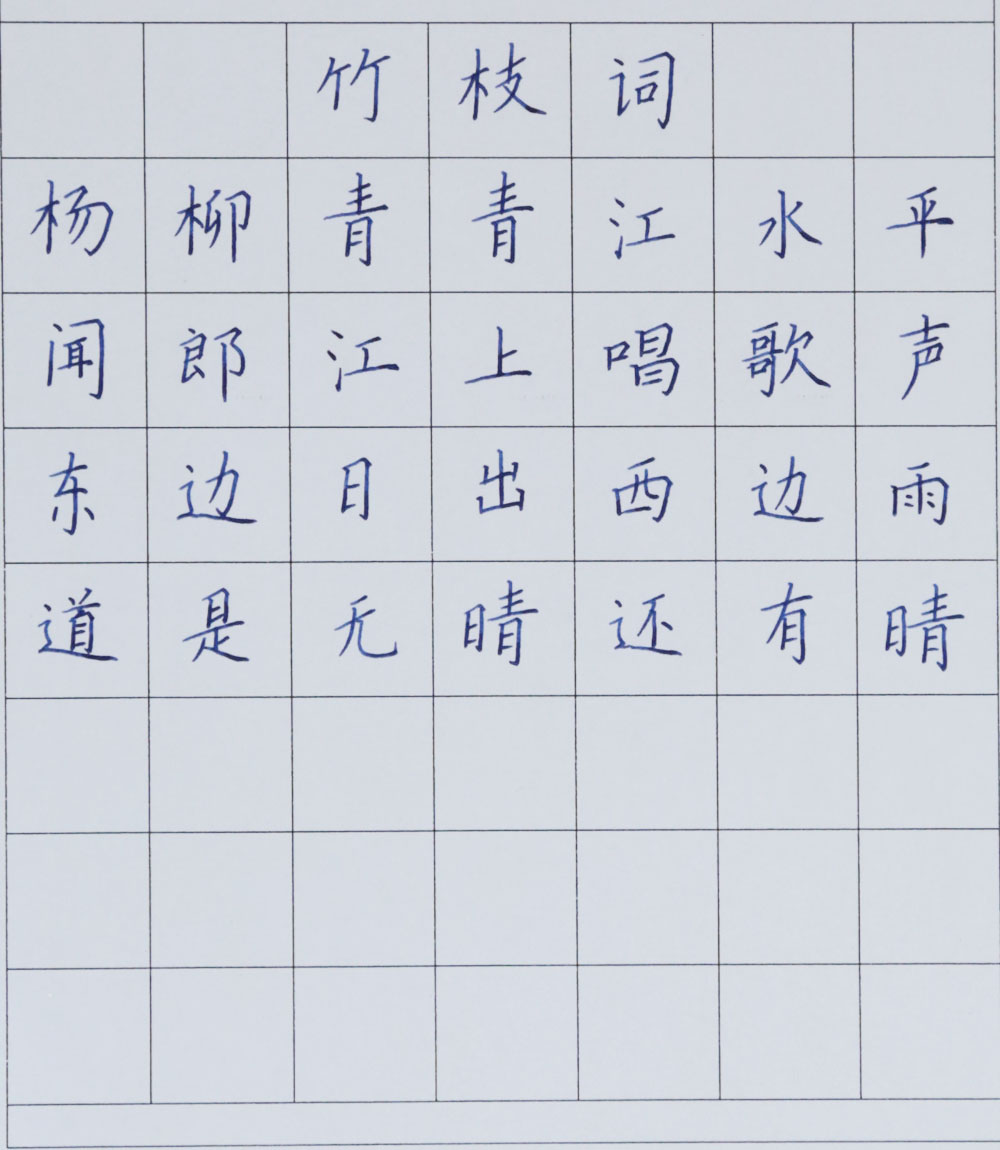 竹枝词
杨柳青青江水平
闻郎江上唱歌声
东边日出西边雨
道是无晴还有晴